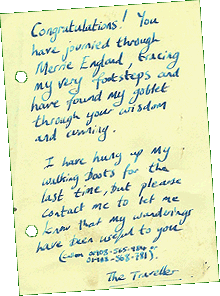 Congratulations! You
have journied through
Merrie England, tracing
my very footsteps and
have found my goblet
through your wisdom
and cunning.
I have hung up my
walking boots for the
last time, but please
contact me to let me
know that my wanderings
have been useful to you
The Traveller